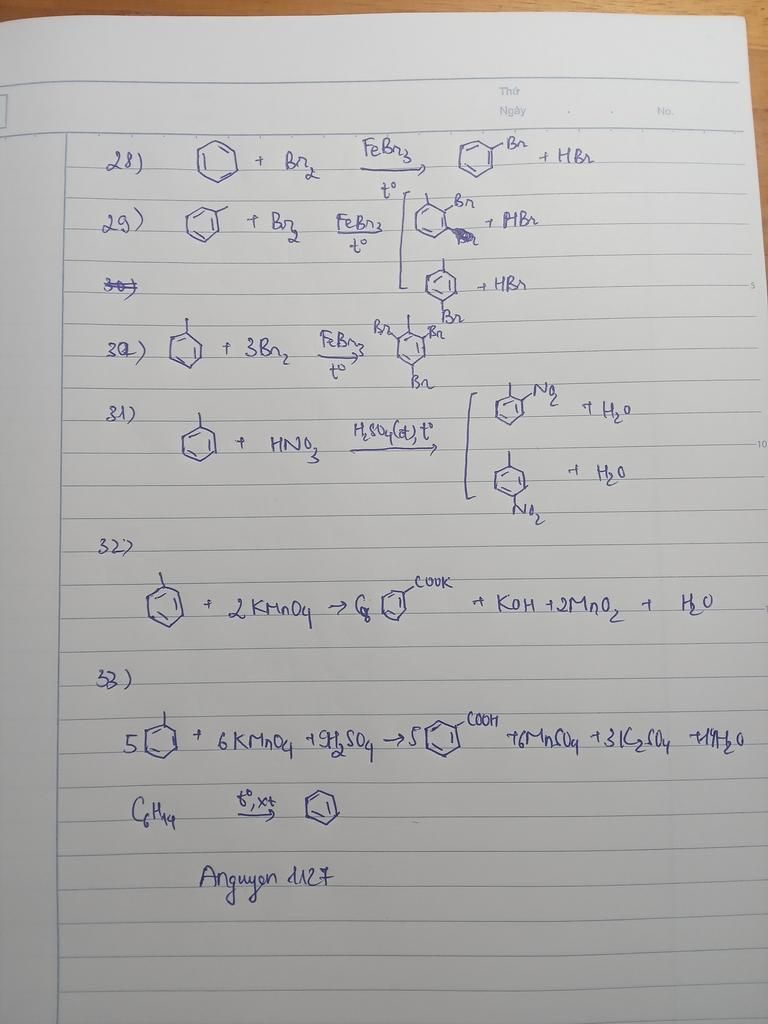 Thứ
Ngày . . No.
28) + Br2 FeBr3 t° Br + HBr
29) + Br2 FeBr3 t° Br + HBr
30)
+ HBr
Br
5
30) + 3Br2 FeBr3 t° Br Br
Br
31) + HNO3 H2SO4(đ), t° NO2 + H2O
10
+ H2O
NO2
32)
+ 2KMnO4 → COOK + KOH + 2MnO2 + H2O
33)
5 + 6KMnO4 + 9H2SO4 → 5 COOH + 6MnSO4 + 3K2SO4 + 14H2O
C6H14 t°, xt
Anguyen 1127